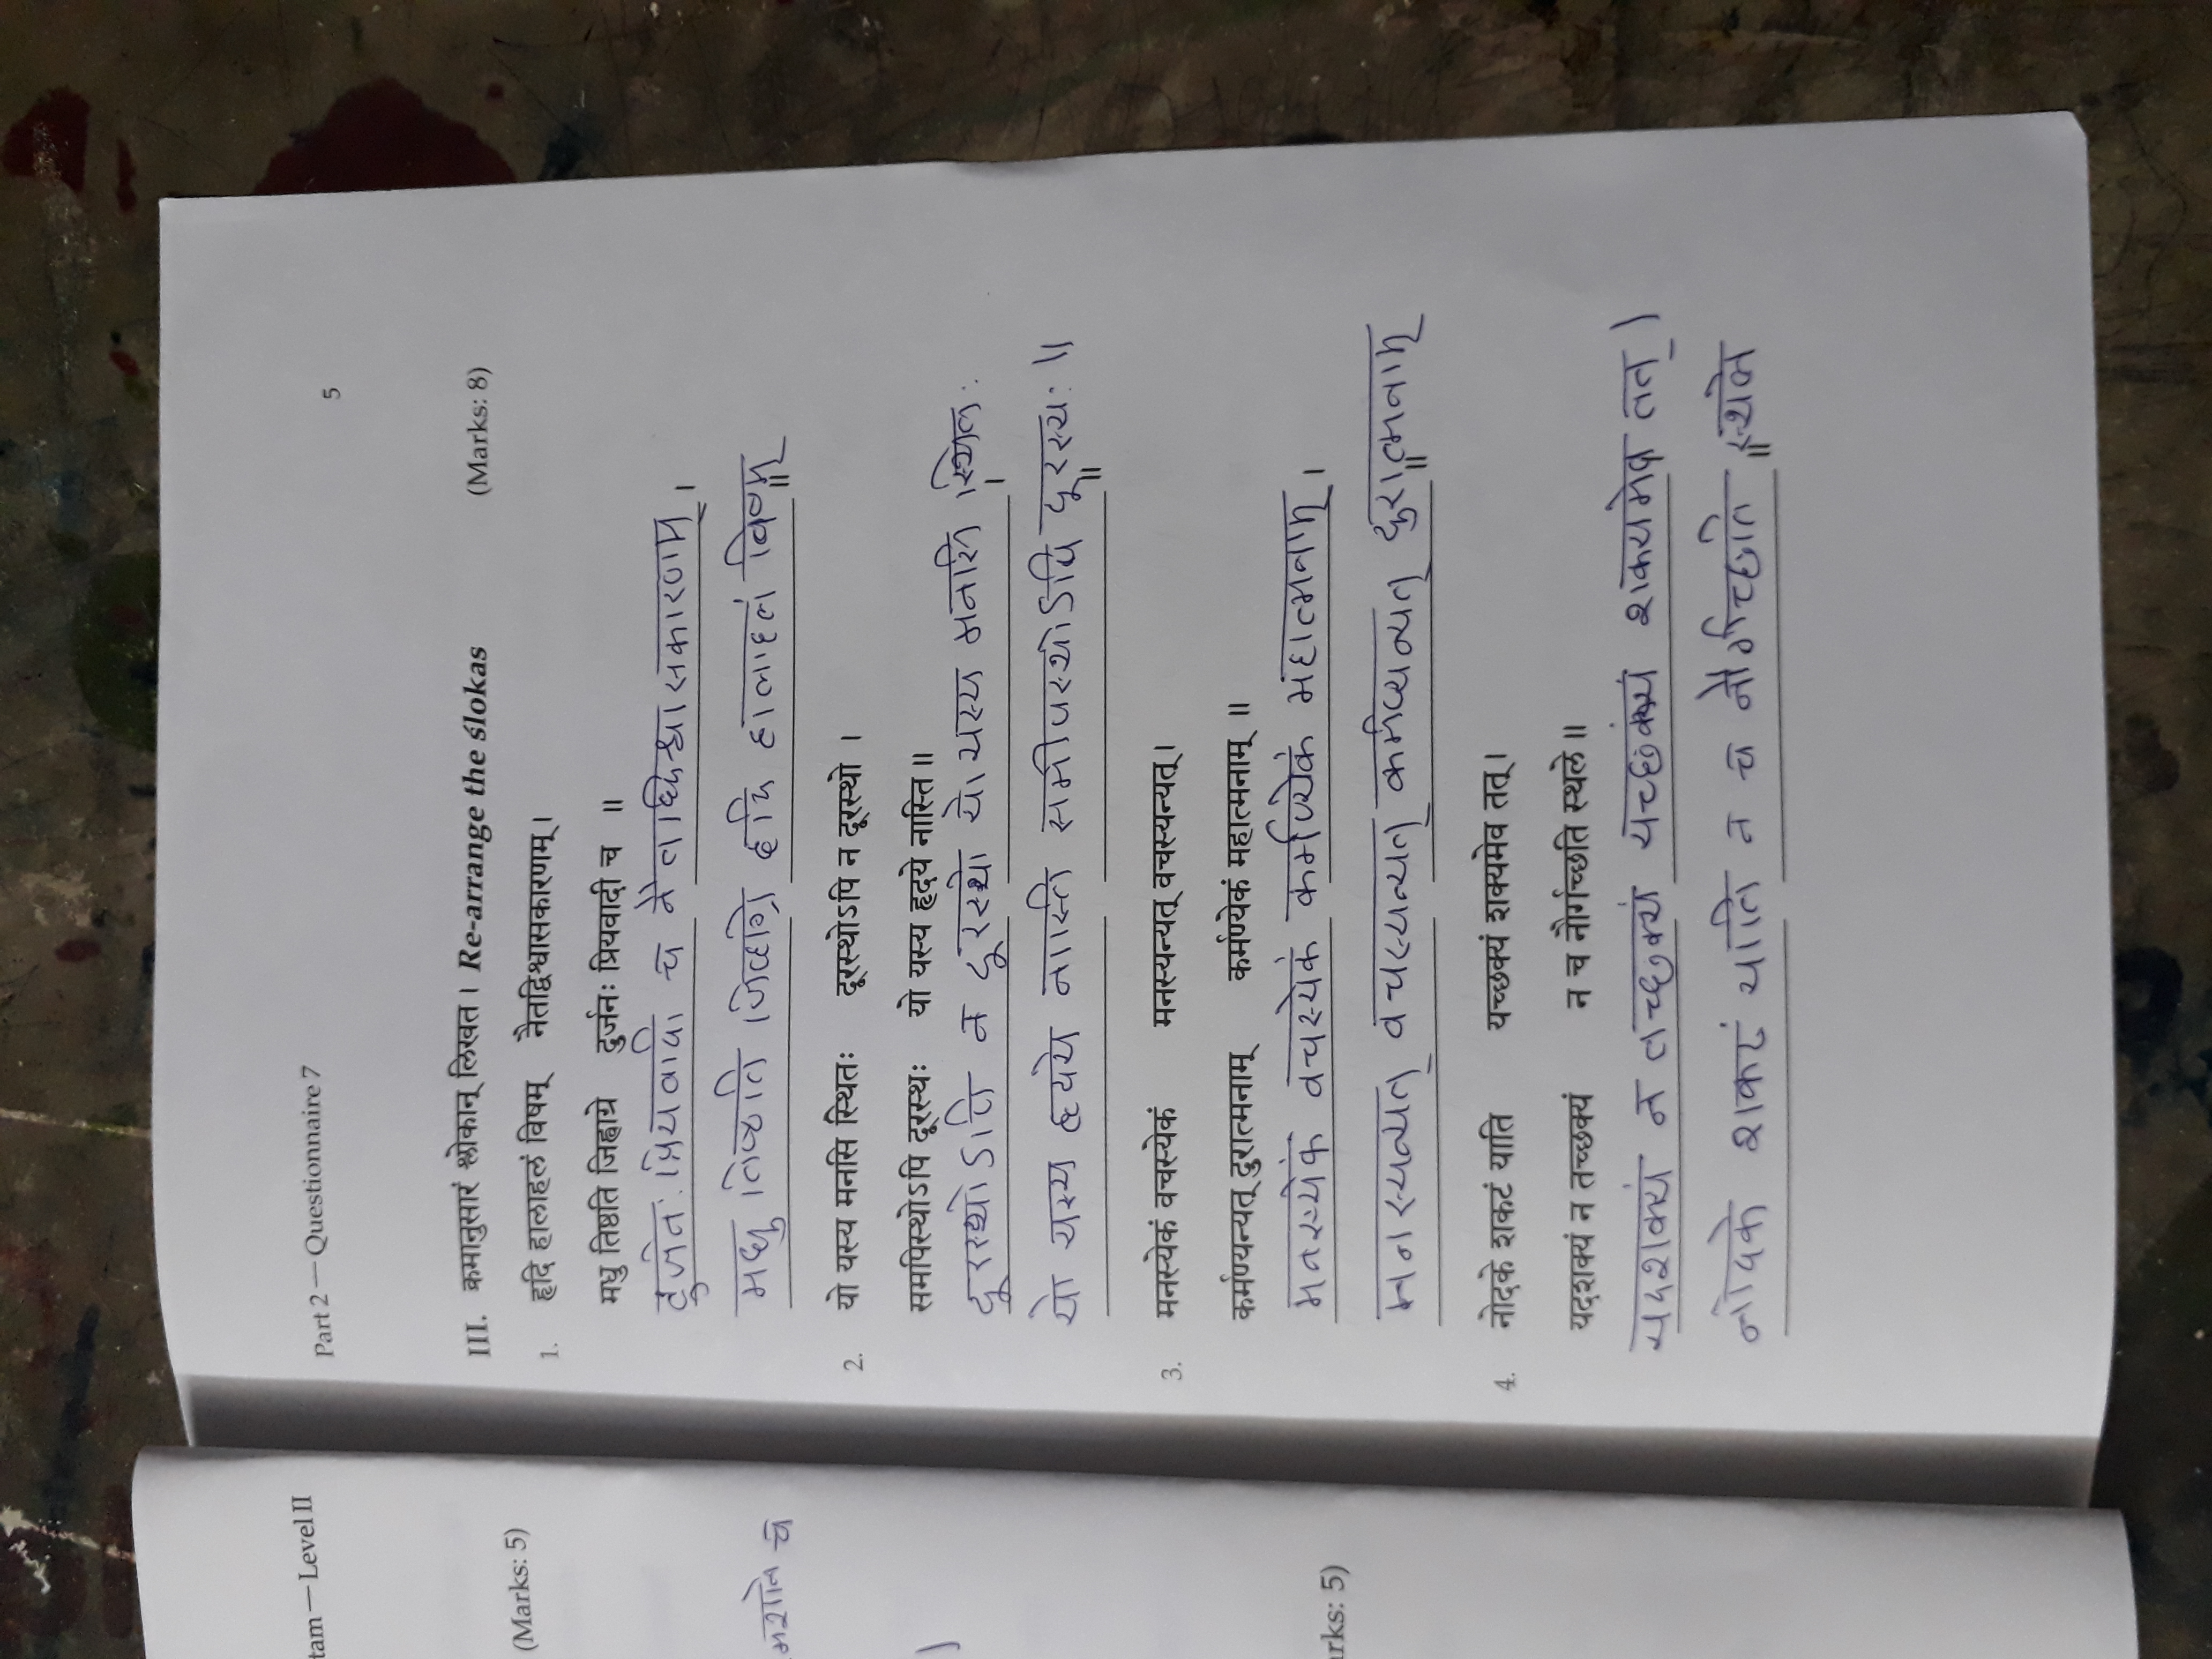 tam — Level II
(Marks: 5)
च
arks: 5)
Part 2 — Questionnaire 7
5
III. क्रमानुसारं श्लोकान् लिखत । Re-arrange the ślokas (Marks: 8)
1. हृदि हालाहलं विषम् नैतद्विश्वासकारणम् ।
मधु तिष्ठति जिह्वाग्रे दुर्जनः प्रियवादी च ॥
दुर्जनः प्रियवादी च नैताद्धिश्वासकारणम् ।
मधु तिष्ठति जिव्हाग्रे हृदि हालाहलं विषम् ॥
2. यो यस्य मनसि स्थितः दूरस्थोऽपि न दूरस्थो ।
समपिस्थोऽपि दूरस्थः यो यस्य हृदये नास्ति ॥
दूरस्थोऽपि न दूरस्थो यो यस्य मनसि स्थितः ।
यो यस्य हृदये नास्ति समीपस्थोऽपि दूरस्थः ॥ ॥
3. मनस्येकं वचस्येकं मनस्यन्यत् वचस्यन्यत् ।
कर्मण्यन्यत् दुरात्मनाम् कर्मण्येकं महात्मनाम् ॥
मनस्येकं वचस्येकं कर्मण्येकं महात्मनाम् ।
मनस्यन्यत् वचस्यन्यत् कर्मण्यन्यत् दुरात्मनाम् ॥
4. नोदके शकटं याति यच्छक्यं शक्यमेव तत् ।
यदशक्यं न तच्छक्यं न च नौर्गच्छति स्थले ॥
यदशक्यं न तच्छक्यं यच्छक्यं शक्यमेव तत् ।
नोदके शकटं याति न च नौर्गच्छति स्थले ॥